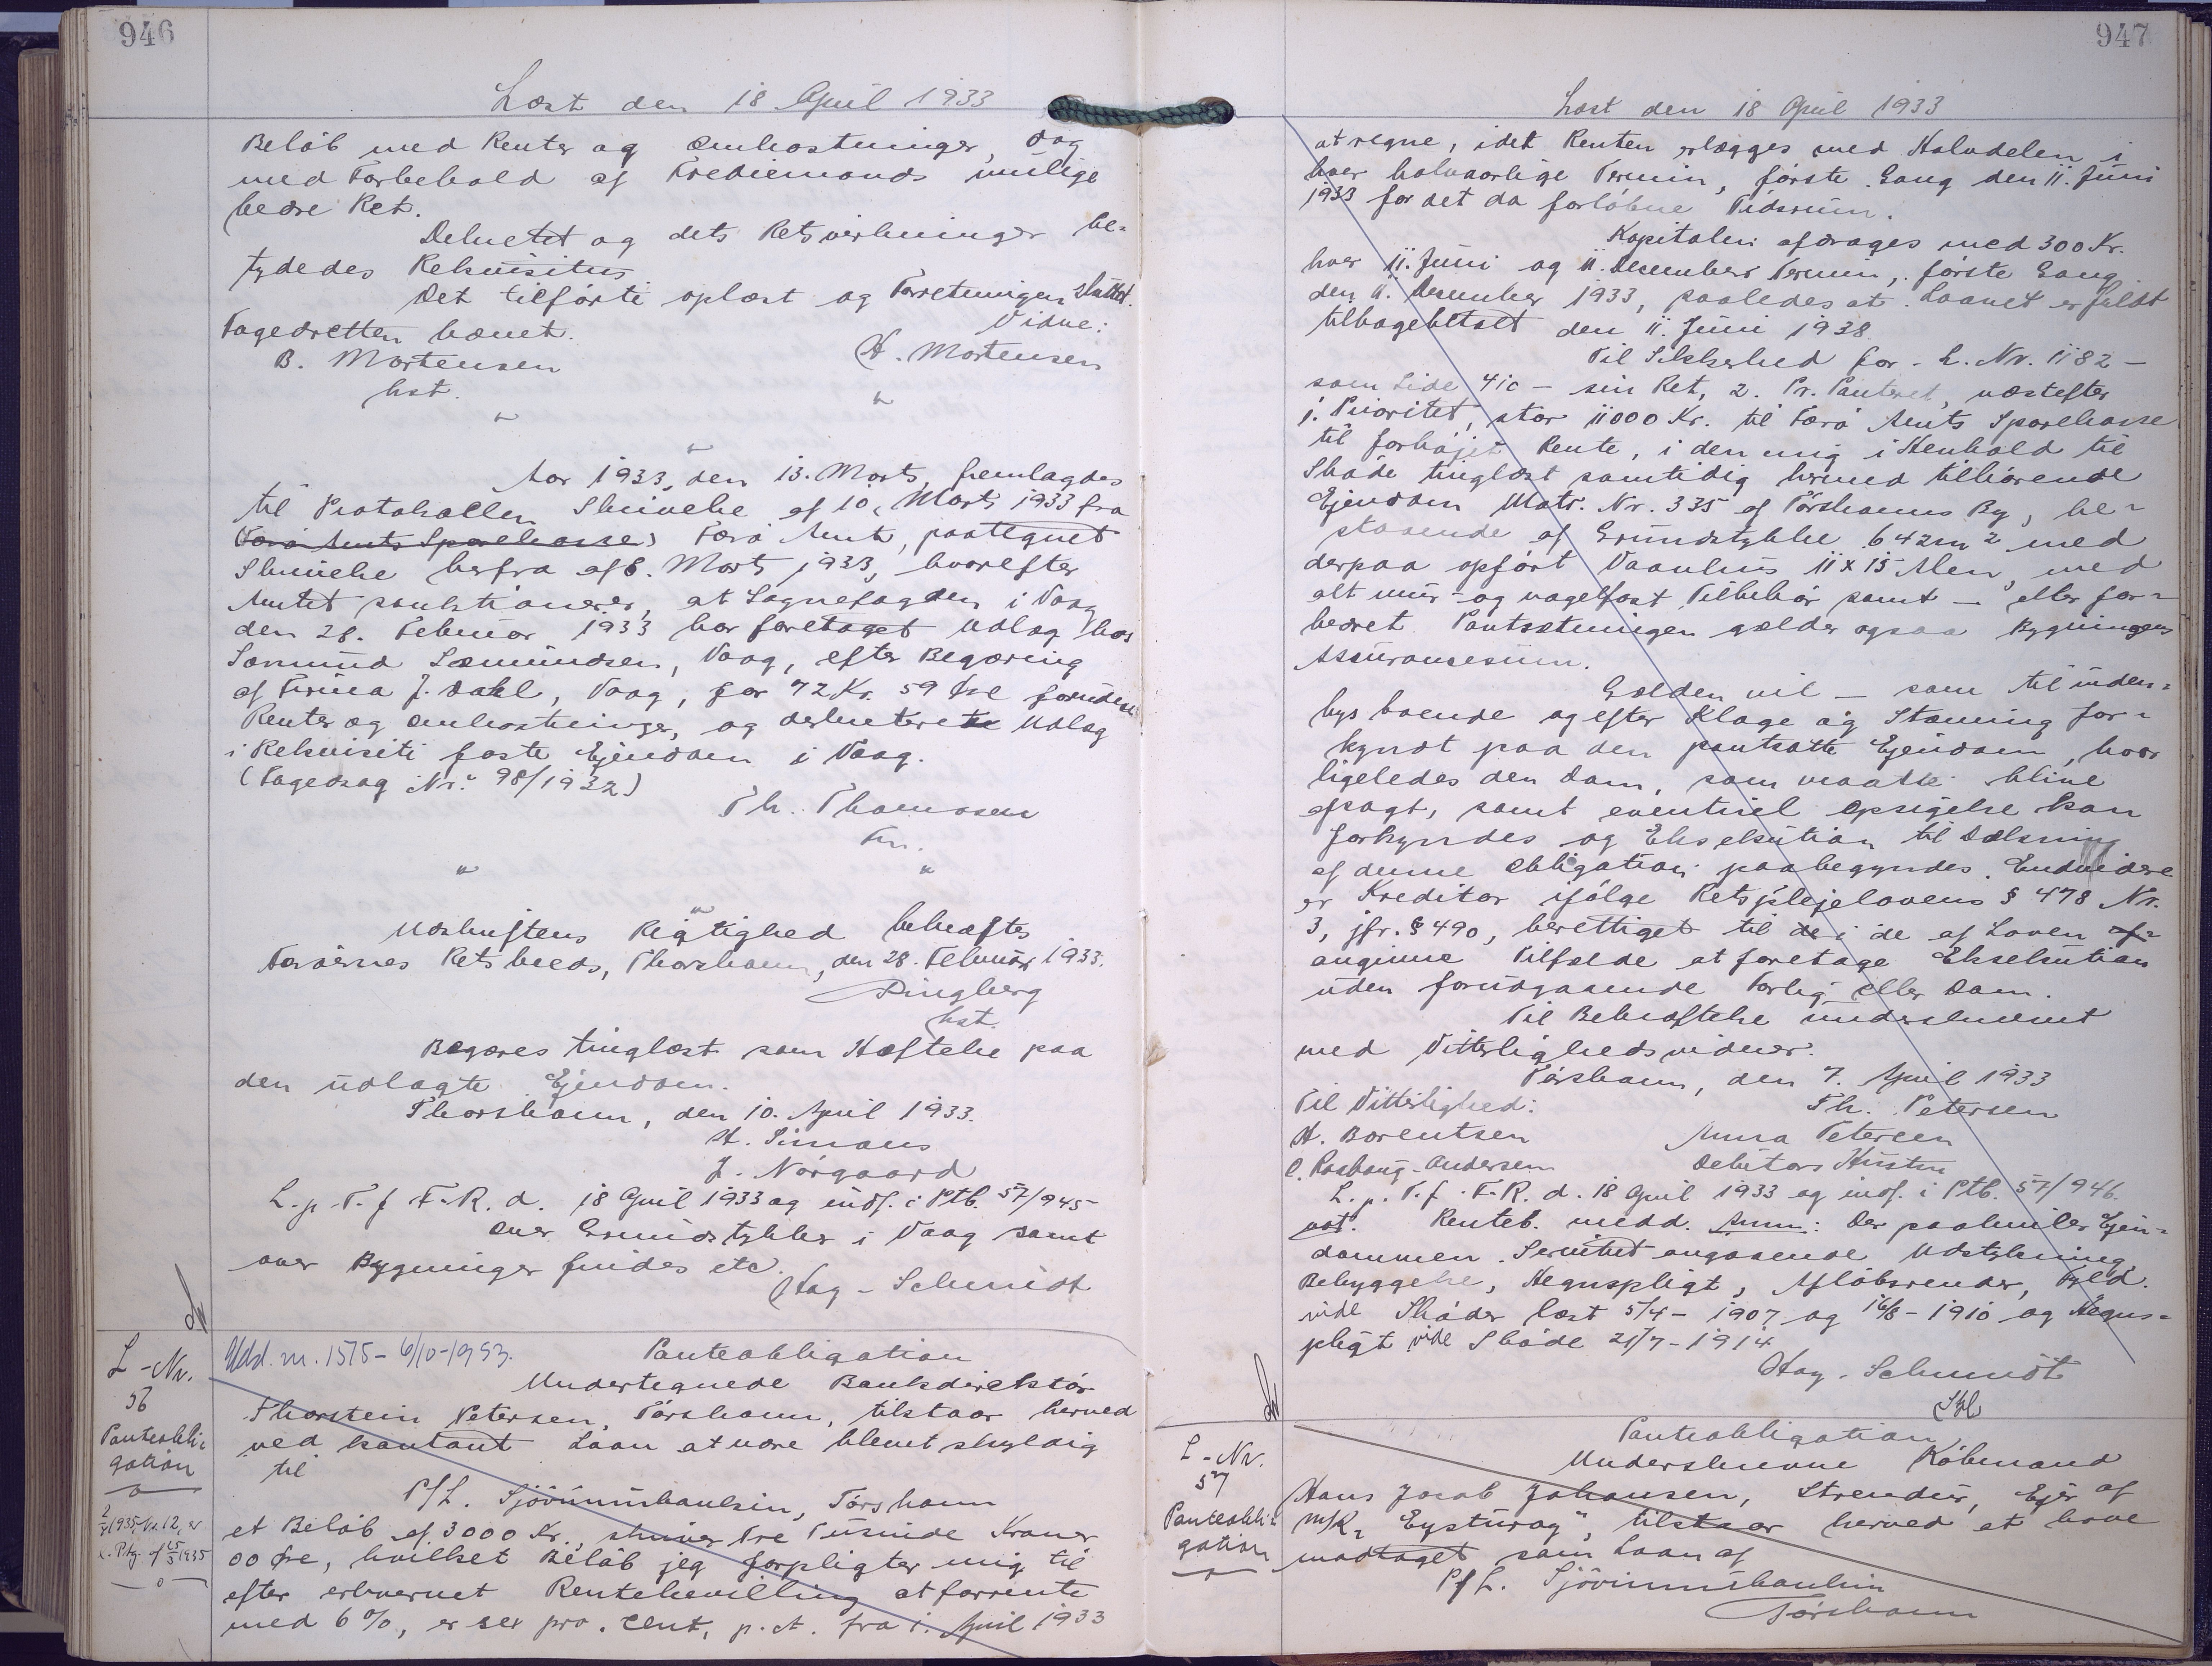 946
Læst den 18 April 1933
Beløb med Renter og Omkostninger, dog
med Forbehold af Trediemands mulige
bedre Ret.
Dekretet og dets Retsvirkninger be=
tydedes Rekvisitus
Det tilførte oplæst og Forretningen sluttet.
Fogedretten hævet.
Vidne:
B. Mortensen
H. Mortensen
kst.
Aar 1933, den 13. Marts, fremlagdes
til Protokollen Skrivelse af 10. Marts 1933 fra
Færø Amts Sparekasse, Færø Amt, paategnet
Skrivelse herfra af 6. Marts 1933, hvorefter
Amtet sanktionerer, at Sognefogden i Vaag
den 28. Februar 1933 har foretaget Udlæg hos
Sæmund Sæmundsen, Vaag, efter Begæring
af Firma J. Dahl, Vaag, for 72 Kr. 59 Øre foruden
Renter og Omkostninger, og dekreterete Udlæg
i Rekvisiti faste Ejendom i Vaag.
(Fogedsag Nr. 98/1932)
Th. Thomassen
Fm.
Udskriftens Rigtighed bekræftes
Færøernes Retskreds, Thorshavn, den 28. Februar 1933.
Ringberg
kst.
Begæres tinglæst som Hæftelse paa
den udlagte Ejendom.
Thorshavn, den 10. April 1933.
H. Simans
J. Nørgaard
L. p. T. f F.R. d. 18 April 1933 og indf. i Ptb. 57/945
Over Grundstykker i Vaag samt
over Bygninger findes etc.
Hay-Schmidt
L-Nr.
56
Panteobli=
gation
Udsl. m. 1575 - 6/10-1953.
Panteobligation
Undertegnede Bankdirektør
Thorstein Petersen, Tórshavn, tilstaar herved
ved kontant Laan at være blevet skyldig
til
P/L. Sjóvinnubankin, Tórshavn
et Beløb af 3000 Kr., skriver Tre Tusinde Kroner
00 Øre, hvilket Beløb jeg forpligter mig til
efter erhvervet Rentebevilling at forrente
med 6%, er sex pro. cent, p. A. fra 1. April 1933
947
Læst den 18 April 1933
at regne, idet Renten erlægges med Halvdelen i
hver halvaarlige Termin, første Gang den 11. Juni
1933 for det da forløbne Tidsrum.
Kapitalen afdrages med 300 Kr.
hver 11. Juni og 11. Desember Termin, første Gang
den 11. Desember 1933, saaledes at Laanet er fuldt
tilbagebetalt den 11. Juni 1938
Til Sikkerhed for - L. Nr. 1182 -
som Side 410 - sin Ret, 2. Pr. Panteret, næstefter
1. Prioritet, stor 11000 Kr. til Færø Amts Sparekasse
til forhøjet Rente, i den mig i Henhold til
Skøde tinglæst samtidig hermed tilhørende
Ejendom Matr. Nr. 335 af Tórshavns By, be=
staaende af Grundstykke 642 m² med
derpaa opført Vaanhus 11 x 13 Alen, med
alt mur- og nagelfast Tilbehør samt - eller for=
bedret. Pantsætningen gælder ogsaa Bygningens
Assurancesum.
Gælden vil - som til inden=
bys boende og efter Klage og Stævning for=
kyndt paa den pantsatte Ejendom, hvor
ligeledes den Dom, som maatte blive
afsagt, samt eventuel Opsigelse kan
forkyndes og Eksekution til Dækning
af denne Obligation paabegyndes. Endvidere
er Kreditor ifølge Retsplejelovens § 478 Nr.
3, jfr. § 490, berettiget til de i de af Loven af=
angivne Tilfælde at foretage Eksekution
uden forudgaaende Forlig eller Dom.
Til Bekræftelse underskrevet
med Vitterlighedsvidner.
Tórshavn, den 7. April 1933
Til Vitterlighed:
Th. Petersen
H. Borentsen
Anna Petersen
C. Rosbaug-Andersen
Debitors Hustru
L. p. T. f. F.R. d. 18 April 1933 og indf. i Ptb. 57/946.
Renteb. medd. Anm: Der paahviler Ejen=
dommen Servitut angaaende Udstykning,
Bebyggelse, Hegnspligt, Afløbsrender, Fyld.
vide Skøder læst 5/4 - 1907 og 16/8 - 1910 og Hegns=
pligt vide Skøde 21/7 - 1914
Hay-Schmidt
L-Nr.
57
Panteobli=
gation
Panteobligation
Underskrevne Købmand
Hans Jacob Johansen, Strendur, Ejer af
m/k "Eysturoy", tilstaar herved at have
modtaget som Laan af
P/L. Sjóvinnubankin
Tórshavn